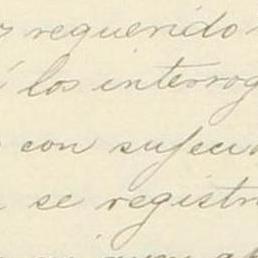 requerido
los interrog
con sujeci
se registr